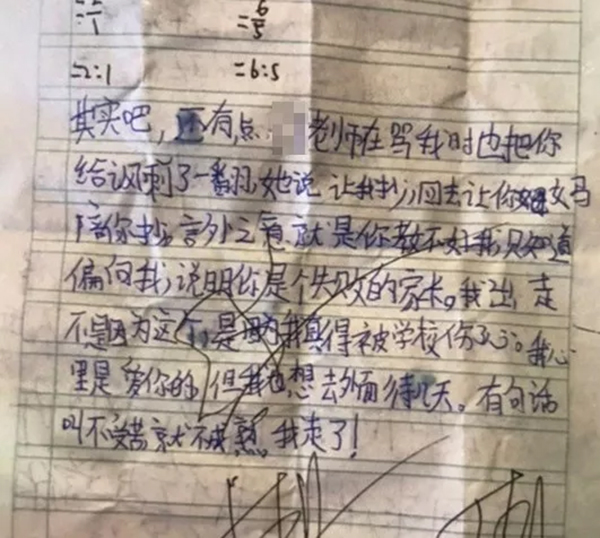 =6/5
=2:1 =6:5
其实吧,还有点 老师在骂我时也把你
给讽刺了一番,她说让我抄,回去让你妈
陪你抄,言外之意就是你教不好我只知道
偏向我,说明你是个失败的家长。我出走
不是因为这个,是因为我真得被学校伤了。我心
里是爱你的,但我也想去外面待几天。有句话
叫不受苦就不成熟,我走了!